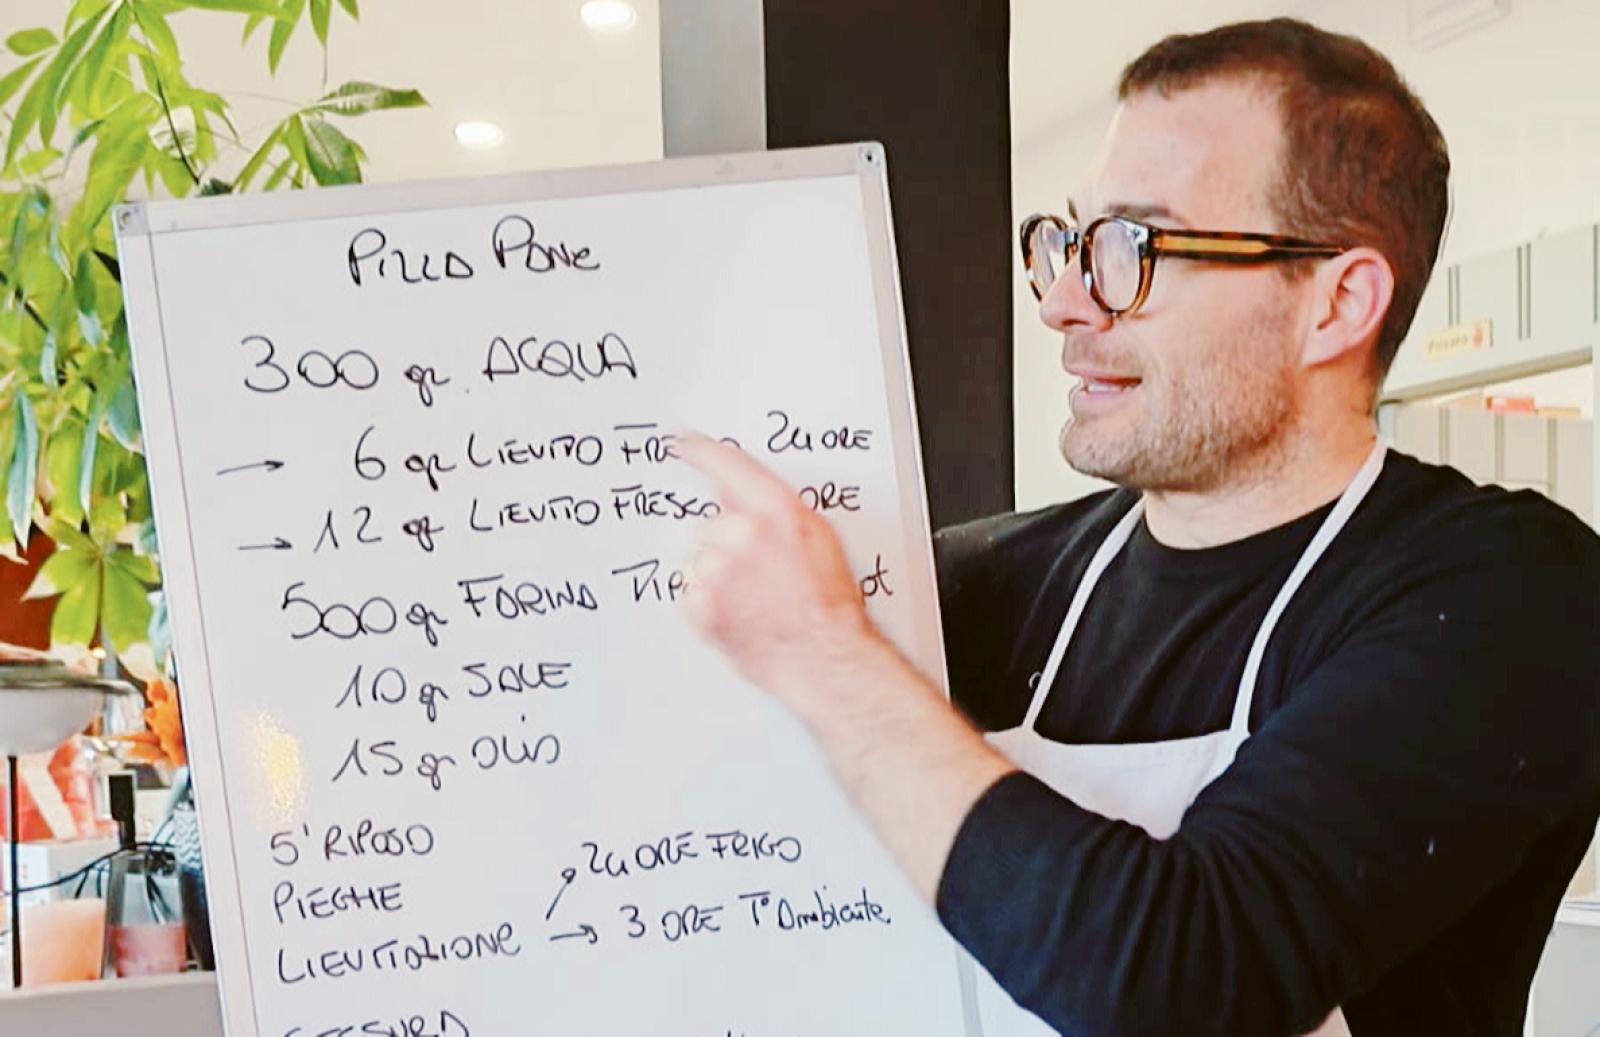 Pizza Pane
300 gr ACQUA
→ 6 gr LIEVITO 24 ORE
→ 12 gr LIEVITO FRESCO ORE
500 gr FARINA
10 gr SALE
15 gr OLIO
5' RIPOSO
PIEGHE
24 ORE FRIGO
LIEVITAZIONE → 3 ORE T° Ambiente
Privato